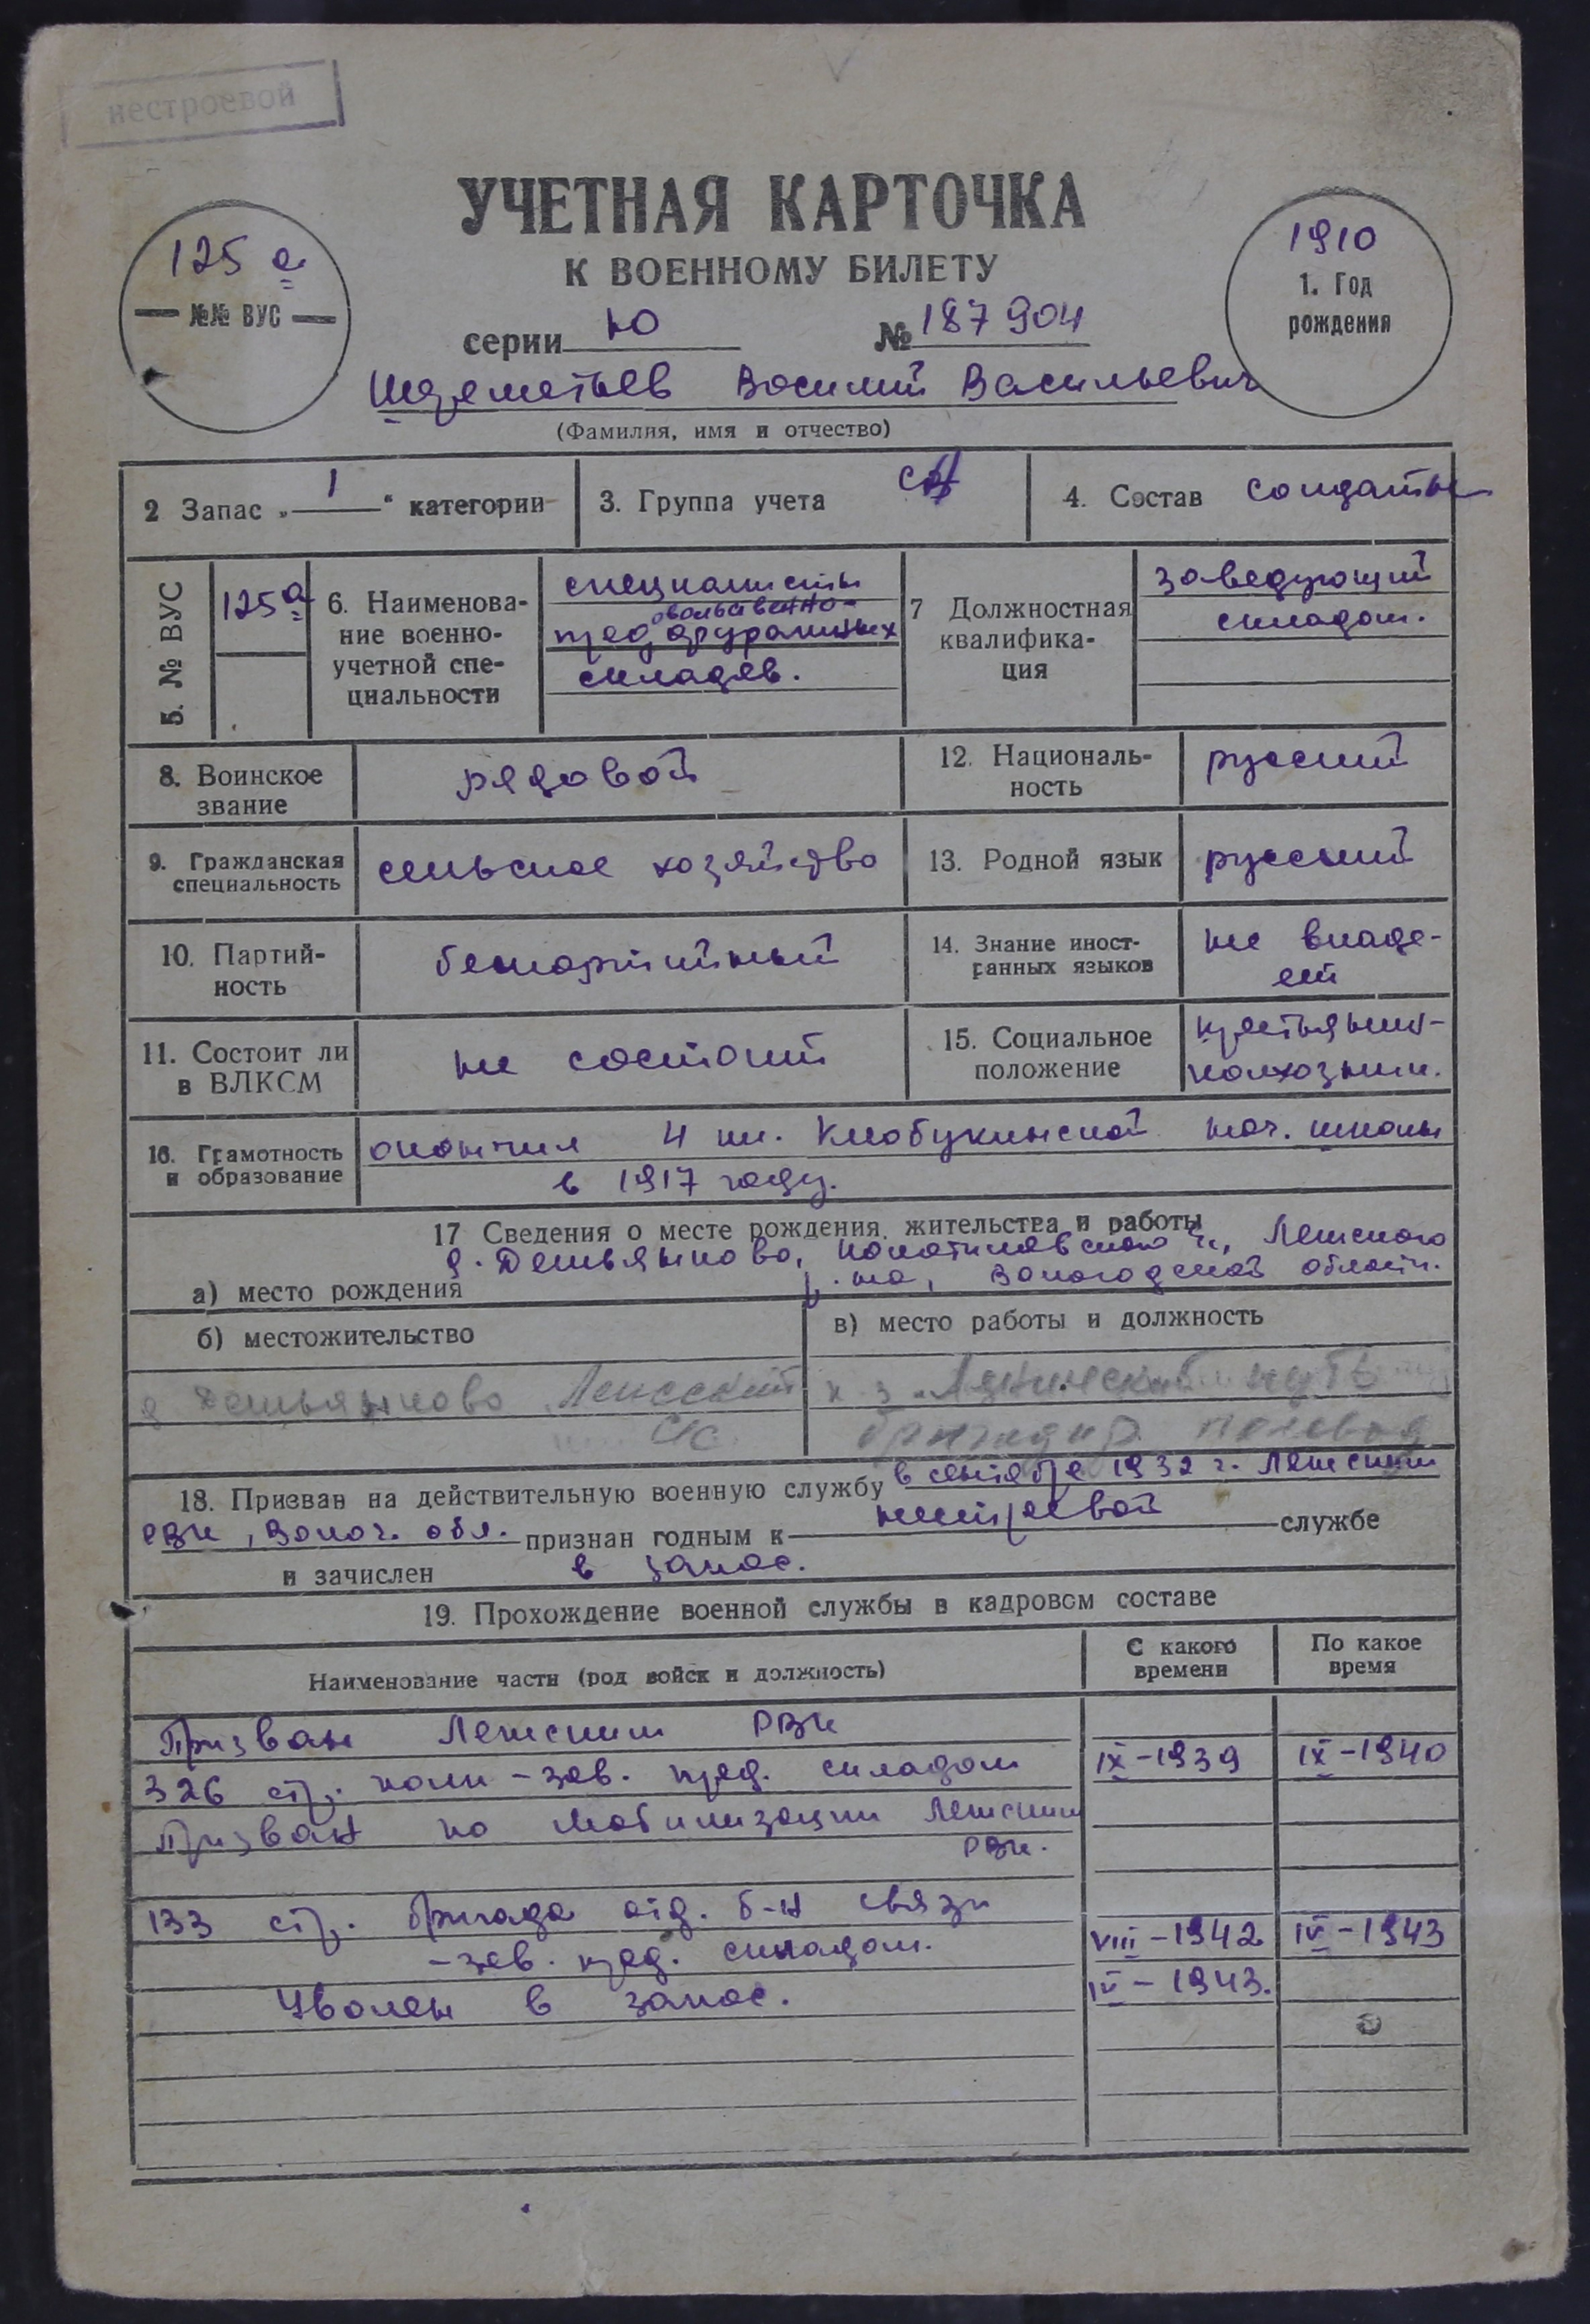 нестроевой
УЧЕТНАЯ КАРТОЧКА
К ВОЕННОМУ БИЛЕТУ
125 а
№№ ВУС
1910
1. Год
рождения
серии Ю № 187904
Шереметьев Василий Васильевич
(Фамилия, имя и отчество)
2 Запас „ 1 “ категории
3. Группа учета СА
4. Состав солдаты
5. № ВУС
125а
6. Наименова-
ние военно-
учетной спе-
циальности
специалисты
овольственно-
прод фуражных
складов.
7 Должностная
квалифика-
ция
заведующий
складом.
8. Воинское
звание
рядовой
12. Националь-
ность
русский
9. Гражданская
специальность
сельское хозяйство
13. Родной язык
русский
10. Партий-
ность
беспартийный
14. Знание иност-
ранных языков
не владе-
ет
11. Состоит ли
в ВЛКСМ
не состоит
15. Социальное
положение
крестьянин-
колхозник.
16. Грамотность
и образование
окончил 4 кл. Клобукинской нач. школы
в 1917 году.
17 Сведения о месте рождения, жительства и работы
д. Демьяново, с/с, Ленского
а) место рождения
р-на, Вологодской област.
б) местожительство
в) место работы и должность
д Демьяново Ленский
с/с
к-з „Ленинский путь
бригадир полевод
18. Призван на действительную военную службу в сентябре 1932 г. Ленским
РВК, Волог. обл. признан годным к нестроевой службе
и зачислен в запас.
19. Прохождение военной службы в кадровом составе
Наименование части (род войск и должность)
С какого
времени
По какое
время
Призван Ленским РВК
326 стр. полк - зав. прод. складом IX-1939 IX-1940
Призван по мобилизации Ленским
РВК.
133 стр. бригада отд. б-н связи
- зав. прод. складом. VIII-1942 IV-1943
Уволен в запас. IV-1943.